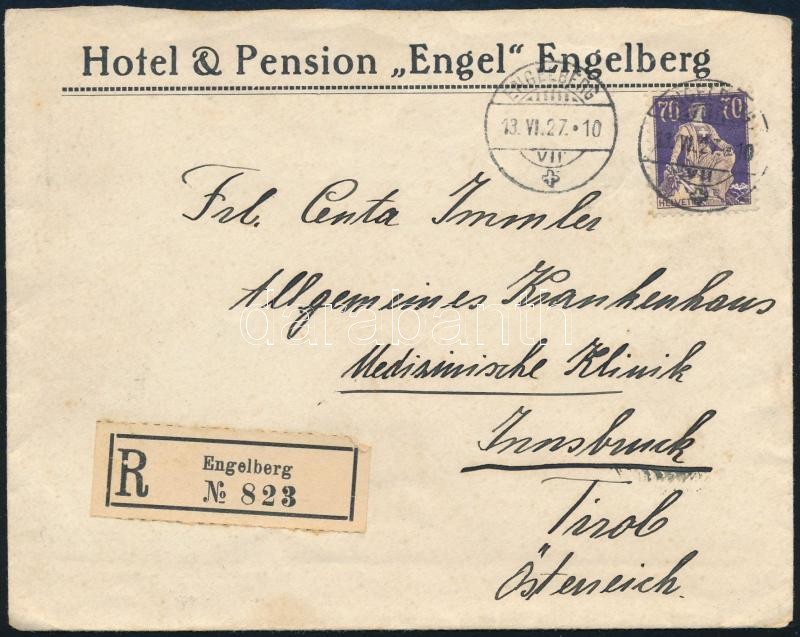 Hotel & Pension „Engel“ Engelberg
ENGELBERG
13. VI. 27. • 10
VII
70 70
HELVETIA
Frl. Centa Immler
Allgemeines Krankenhaus
darabanth
Medizinische Klinik
Innsbruck
Tirol
Österreich.
R Engelberg
№ 823